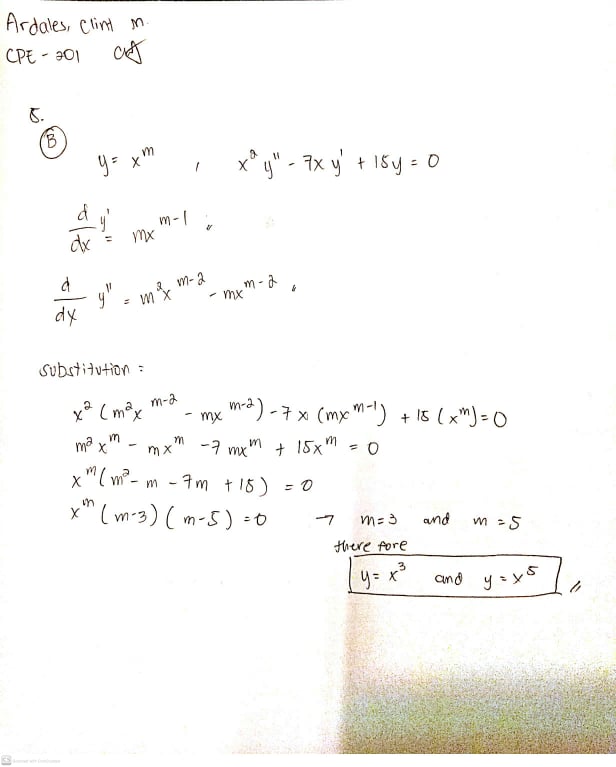 Ardales, Clint M.
CPE - 201
5.
B
y = x^m , x² y" - 7x y' + 15y = 0
d/dx y' = mx^m-1 ,,
d/dx y" = m²x^m-2 - mx^m-2 ,,
substitution :
x² (m²x^m-2 - mx^m-2) - 7x (mx^m-1) + 15 (x^m) = 0
m² x^m - mx^m - 7 mx^m + 15x^m = 0
x^m (m² - m - 7m + 15) = 0
x^m (m-3) (m-5) = 0 → m=3 and m=5
there fore
y = x³ and y = x⁵ //
CS Scanned with CamScanner